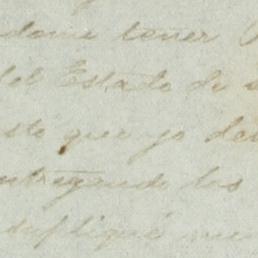 dome tener
del Estado de
sto que yo de
ntregando los
supliqué me